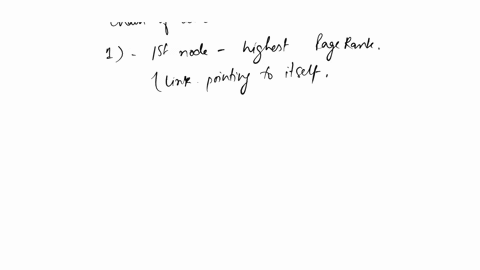 1) - 1st node - highest PageRank.
(link pointing to itself.